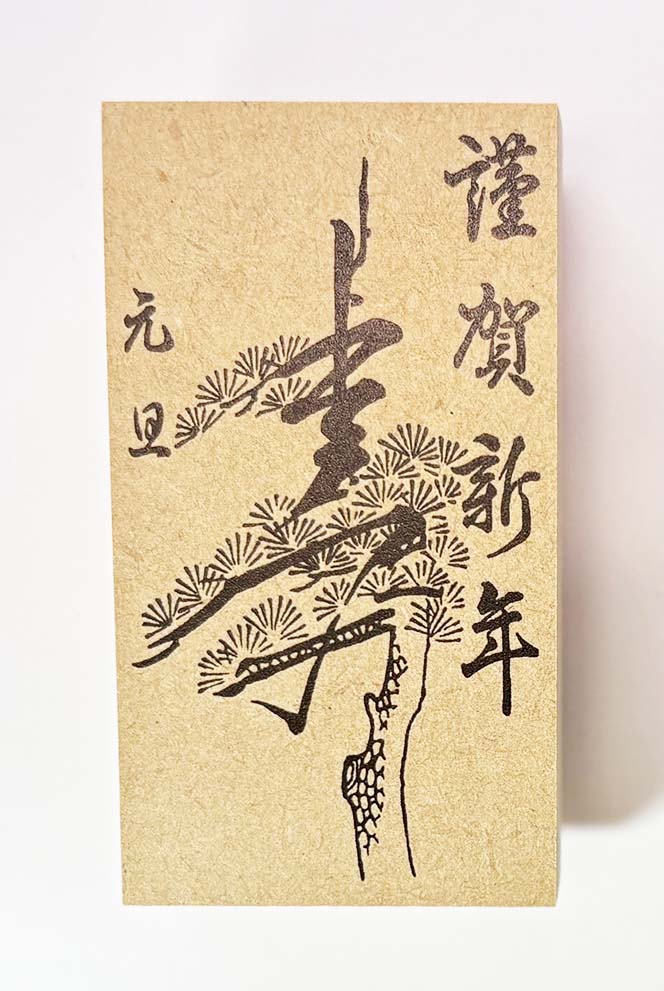 謹賀新年
壽
元旦